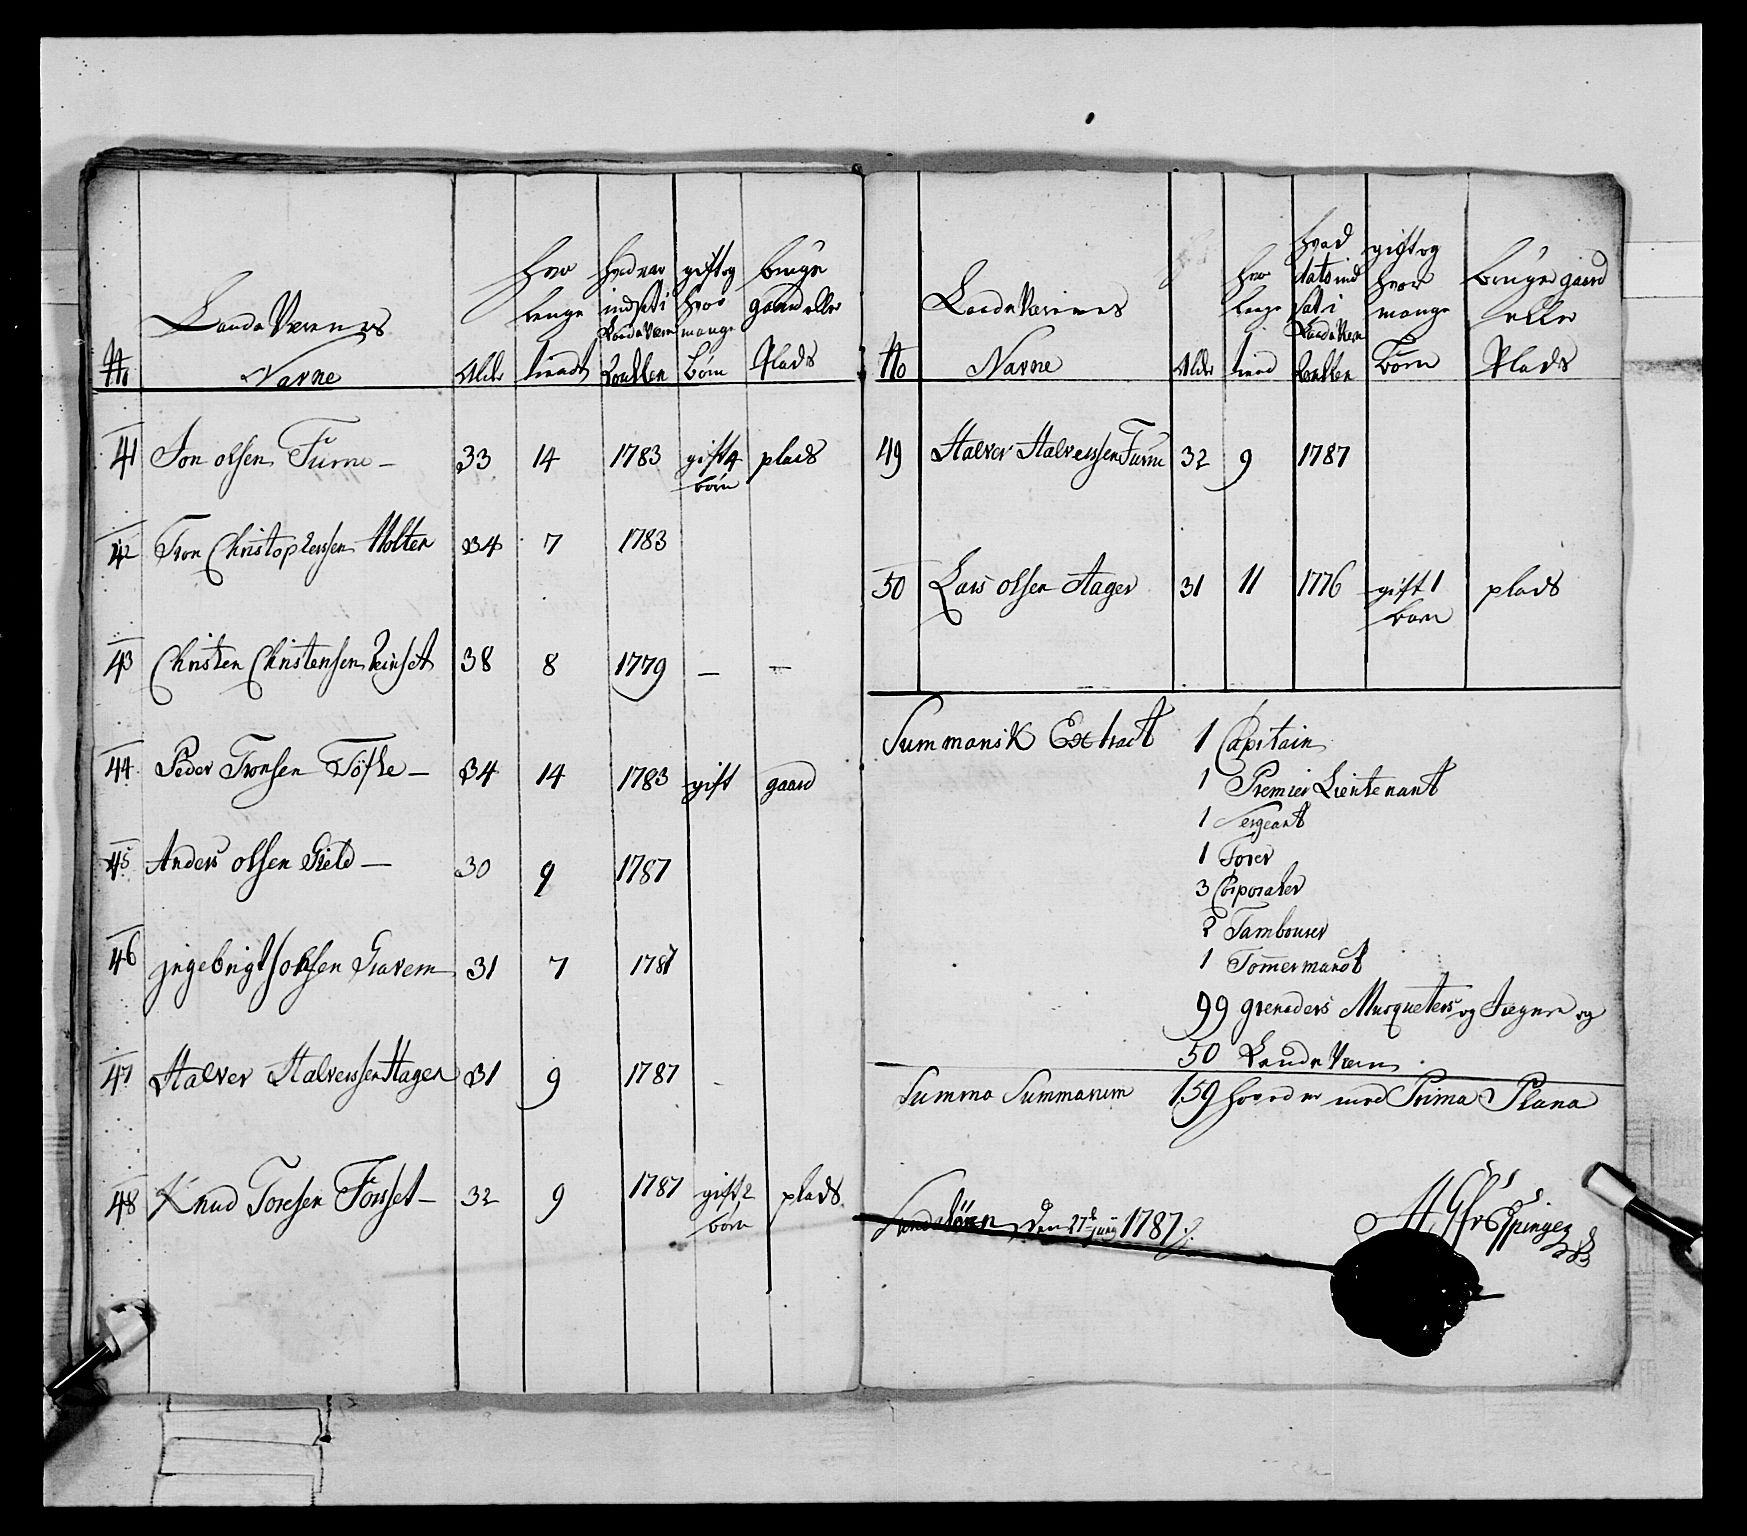 No
Landværnes
Navne
Alder
hvor
lenge
tient
hvad aar
indsat i
Landværn
Roullen
gift og
hvor
mange
børn
bruger
gaard eller
Plads
41 Jon olsen Furne – 33 14 1783 gift 4 plads
børn
42 Tron Christophersen Holten 34 7 1783
43 Christen Christensen 38 8 1779 – –
44 Peder Tronsen Töfte – 34 14 1783 gift gaard
45 Anders olsen Gield – 30 9 1787
46 jngebrigt Gravem 31 7 1787
47 Halver Halversen Hagen 31 9 1787 -
48 Knud Toresen Forset – 32 9 1787 gift 2 plads
børn
No
Landværnes
Navne
Alder
hvor
lenge
tient
hvad
indsat i
Landværn
Rullen
gift og
hvor
mange
Børn
bruger gaard
eller
Plads
49 Halver Halversen Furne 32 9 1787
50 Lars olsen Hager 31 11 1776 gift 1 plads
barn
Summarisk Extract 1 Capitain
1 Premier Lieutenant
1 Sergeant
1 Forer
3 Corporaler
2 Tambourer
1 Tömermand
99 grenaders Musqueters og Jægere og
50 Landværn
Summa Summarum 159 hoveder med Prima Plana
den 27d juny 1787